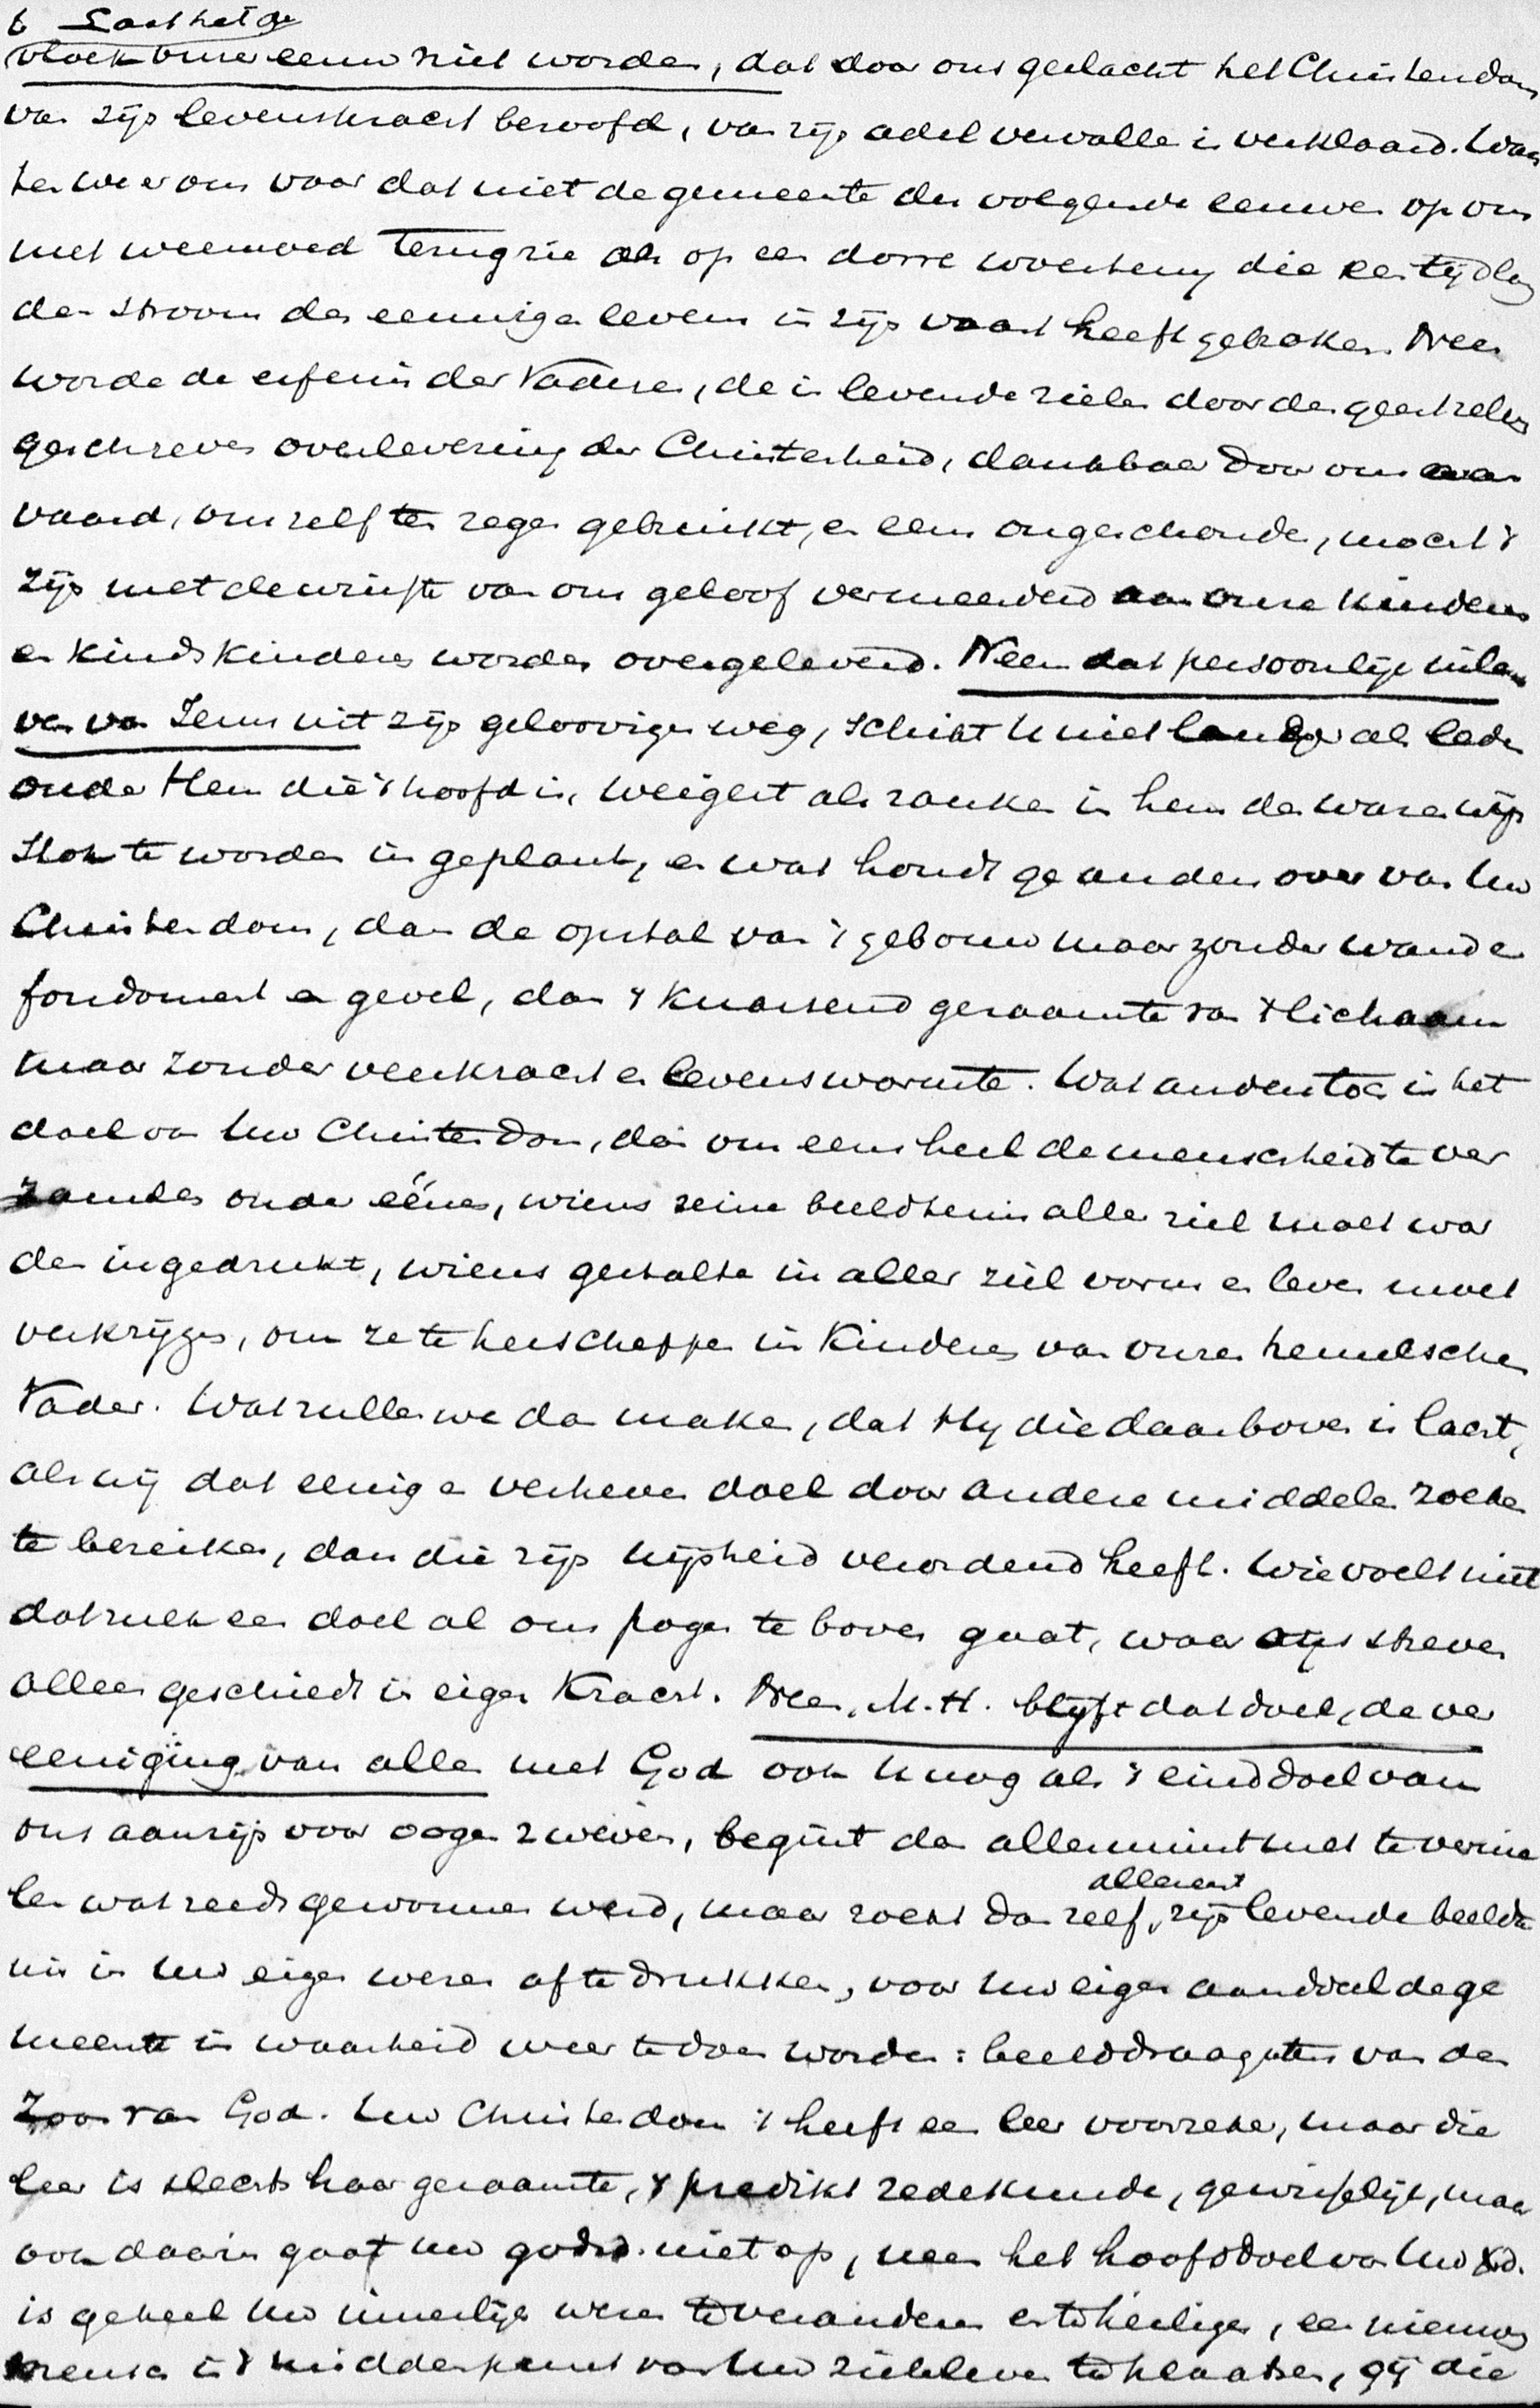 6 Laat het de
vloek onzer eeuw niet worden, dat door ons geslacht het Christendom
van zijn levenskracht beroofd, van zijn adel vervallen is verklaard. Wach
ten we er ons voor dat niet de gemeente der volgende eeuwen op ons
met weemoed terugzie als op een dorre woesteny die een tijdlang
den stroom des eeuwigen levens in zijn vaart heeft gebroken. Neen
worde de erfenis der Vaderen, de in levende zielen door den geest zelven
geschreven overlevering der Christenheid, dankbaar door ons aan
vaard, ons zelf ten zegen gebruikt, en eens ongeschonden, mocht 't
zijn met de winste van ons geloof vermeerderd aan onze kinderen
en kindskinderen worden overgeleverd. Neem dat persoonlijk inle
ven van Jezus uit zijn geloovigen weg, schikt U niet langer als leden
onder Hem die 't hoofd is, weigert als ranken in hem den waren wijn
stok te worden ingeplant, en wat houdt ge anders over van Uw
Christendom, dan de opstal van 't gebouw maar zonder wanden
fondament en gevel, dan 't knarsend geraamte van 't lichaam
maar zonder veerkracht en levenswarmte. Wat anders toch is het
doel van Uw Christendom, dan om eens heel de menschheid te ver
zamelen onder éénen, wiens reine beeldtenis aller ziel moet wor
den ingedrukt, wiens gestalte in aller ziel vorm en leven moet
verkrijgen, om ze te herscheppen in Kinderen van onzen hemelschen
Vader. Wat zullen we dan maken, dat Hy die daarboven is lacht,
als wij dat eenig en verheven doel door andere middelen zoeken
te bereiken, dan die zijn wijsheid verordend heeft. Wie voelt niet
dat zulk een doel al ons pogen te boven gaat, waar ons streven
alleen geschiedt in eigen Kracht. Neen, M.H. blijft dat doel, de ver
eeniging van allen met God ook U nog als 't einddoel van
ons aanzijn voor oogen zweven, begint dan allerminst met te vernie
len wat reeds gewonnen werd, maar zoekt dan zelf allereerst zijn levende beeldte
nis in Uw eigen wezen af te drukken, voor Uw eigen aandeel de ge
meente in waarheid weer te doen worden: beelddraagster van den
Zoon van God. Uw Christendom 't heeft een leer voorzeker, maar die
leer is slechts haar geraamte, 't predikt zedekunde, gewisselijk, maar
ook daarin gaat uw godsd. niet op, neen het hoofddoel van Uw Xd.
is geheel Uw innerlijk wezen te veranderen en te heiligen, een nieuwen
mensch in 't middenpunt van Uw zieleleven te plaatsen, gij die